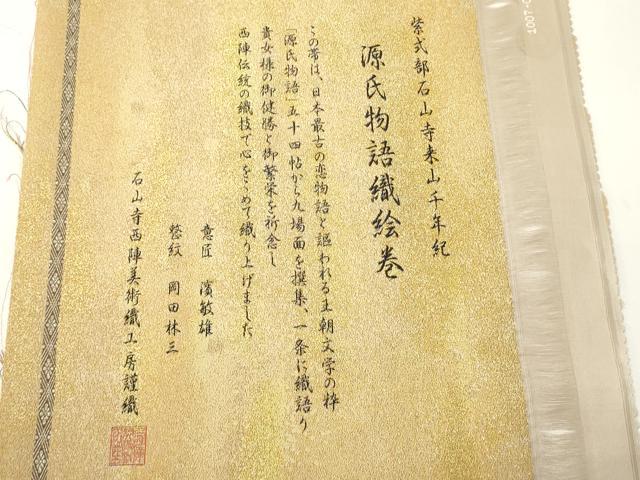 紫式部石山寺来山千年紀
源氏物語織絵巻
この帯は、日本最古の恋物語と謳われる王朝文学の粋
「源氏物語」五十四帖から九場面を撰集、一条に織語り
貴女様の御健勝と御繁栄を祈念し
西陣伝統の織技で心をこめて織り上げました
意匠 濱敏雄
整紋 岡田林三
石山寺西陣美術織工房謹織